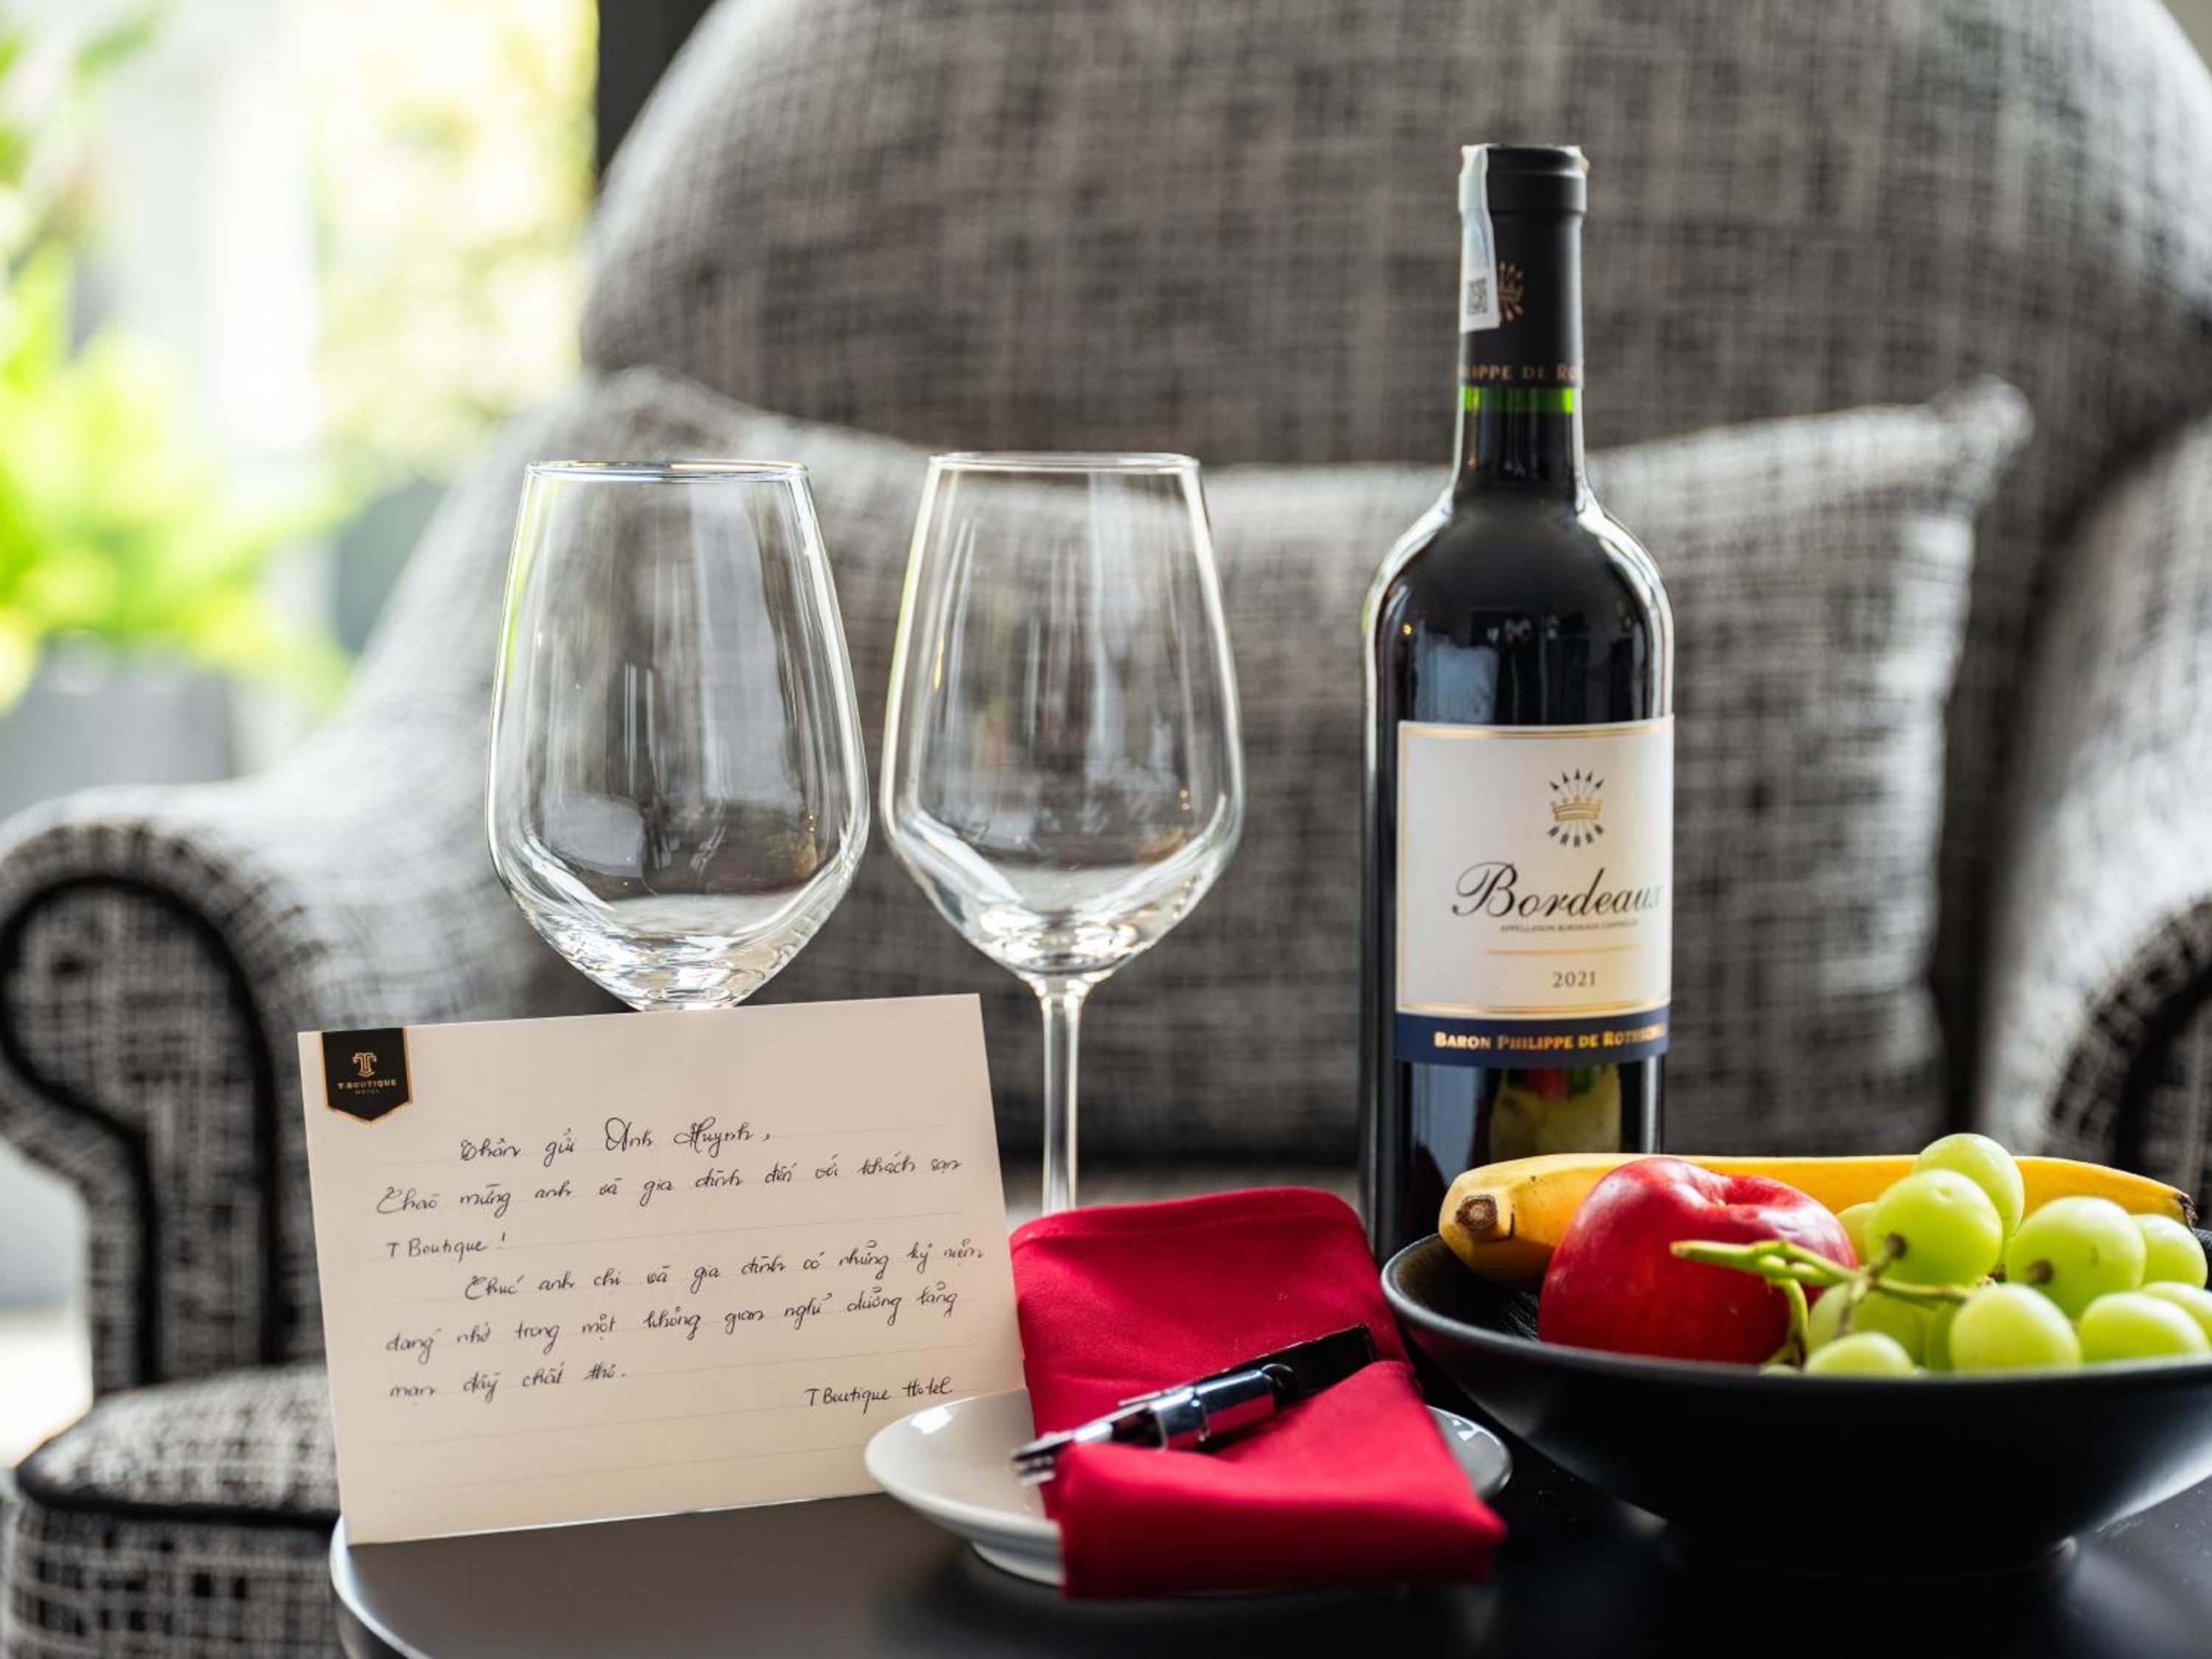 IPPE DE RO
Bordeaux
APPELLATION BORDEAUX CONTRÔLÉE
2021
BARON PHILIPPE DE ROTHSCHI
T-BOUTIQUE
HOTEL
Thân gửi Anh Huynh,
Chào mừng anh và gia đình đến với khách sạn
T Boutique !
Chúc anh chị và gia đình có những kỷ niệm
đáng nhớ trong một không gian nghỉ dưỡng lãng
mạn đầy chất thơ.
T Boutique Hotel